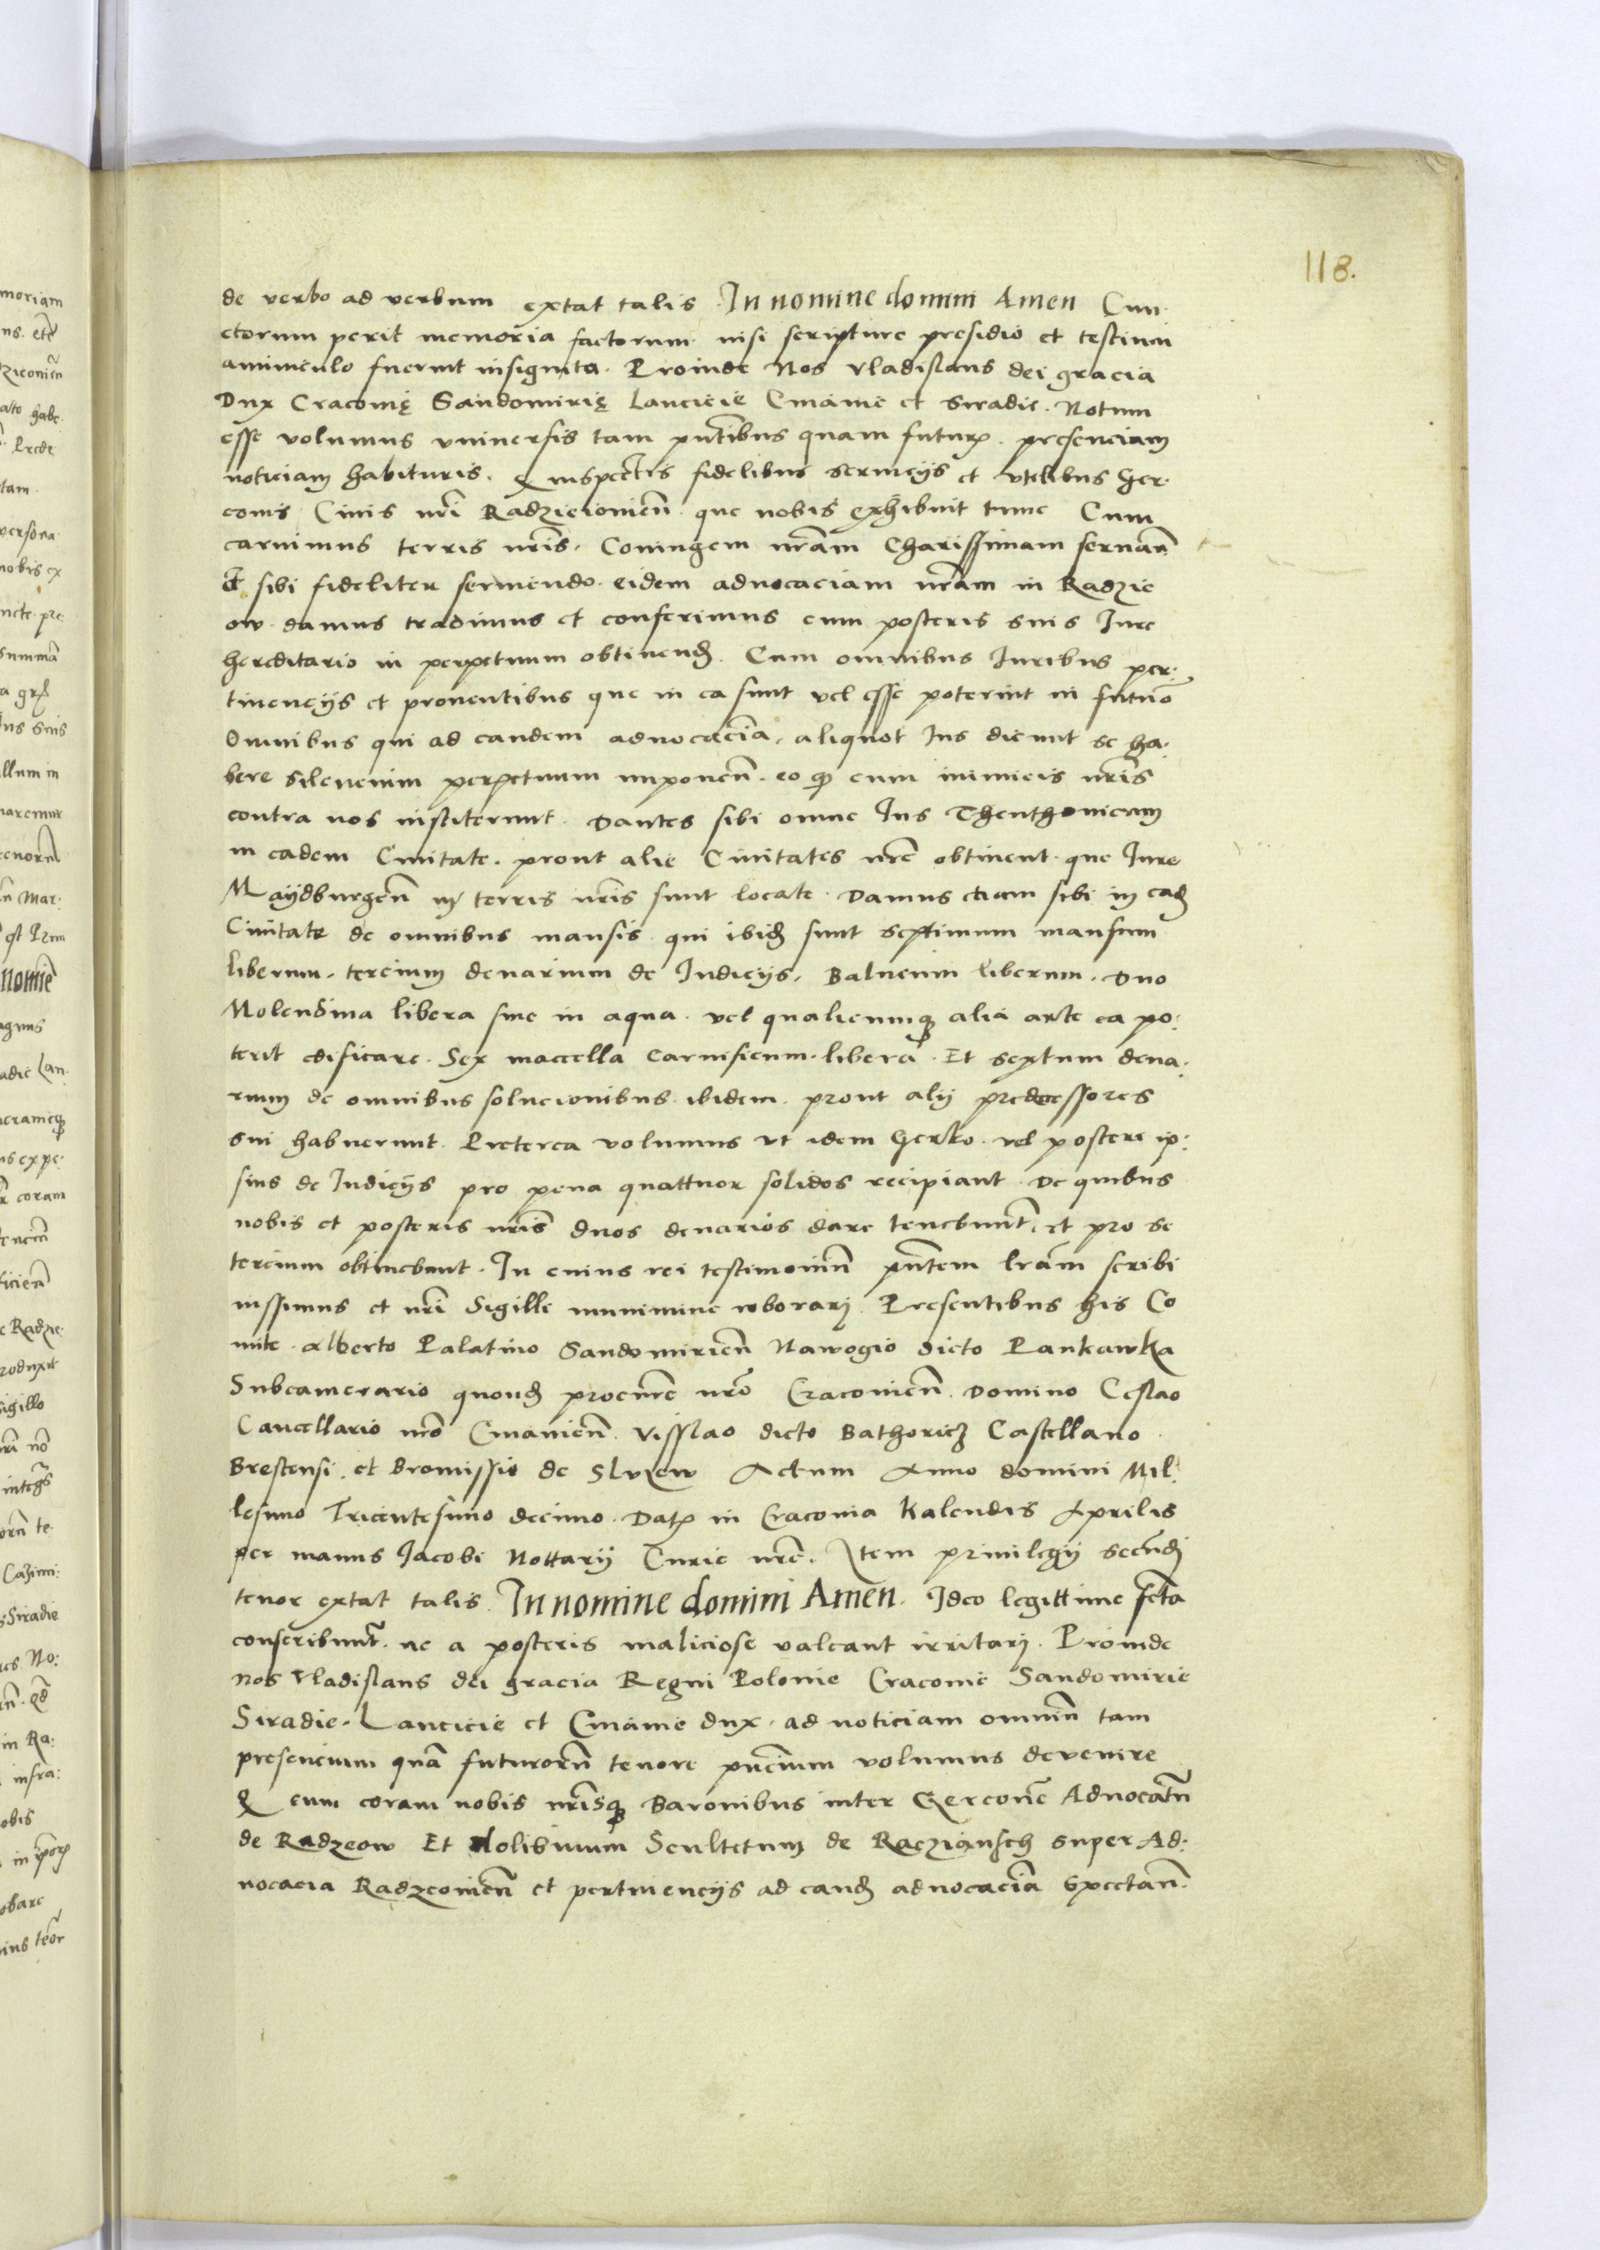 118.
de verbo ad verbum extat talis. In nomine domini Amen Cun-
ctorum perit memoria factorum nisi scripture presidio et testium
aminiculo fuerint insignita. Proinde Nos Vladislaus dei gracia
Dux Cracovię Sandomirię Lancicie Cuiavie et Siradie. Notum
esse volumus universis tam pñtibus quam futuris presenciam
noticiam habituris. Q inspectis fidelibus servicijs et utilibus Ger-
conis Civis nr̃i Radzieiovień que nobis exhibuit tunc Cum
caruimus terris nr̃is. Coniugem nrãm Charissimam servañ
Et sibi fideliter serviendo eidem advocaciam nrãm in Radzie
ow damus tradimus et conferimus cum posteris suis Iure
hereditario in perpetuum obtinend. Cum omnibus Iuribus per-
tinencijs et proventibus que in ea sunt vel esse poterint in futuro
Omnibus qui ad eandem advocaciã. aliquot Ius dicunt se ha-
bere silencium perpetuum imponeñ. eo q cum inimicis nr̃is
contra nos institerunt. Dantes sibi omne Ius Theuthonicum
in eadem Civitate. prout alie Civitates nr̃e obtinent que Iure
Maydburgeñ in terris nr̃is sunt locate. Damus etiam sibi in ead
Civitate de omnibus mansis qui ibid sunt septimum mansum
liberum. tercium denarium de Iudicijs. Balneum liberum. Duo
Molendina libera sive in aqua vel qualicumq alia arte ea po:
terit edificare. Sex maccella carnificum libera. Et sextum dena:
rium de omnibus solucionibus ibidem prout alij predecessores
sui habuerunt. Preterea volumus ut idem Gerko vel postere ip:
sius de Iudicijs pro pena quattuor solidos recipiant. De quibus
nobis et posteris nr̃is duos denarios dare tenebunt̃. et pro se
tercium obtinebunt. In cuius rei testimoniũ pñtem lrãm scribi
iussimus et nr̃i Sigilli munimine roborari. Presentibus his Co
mite Alberto Palatino Sandomirień Nawogio dicto Pankawka
Subcamerario quond procure nrõ Cracovień. Domino Ceslao
Cancellario nrõ Cuiavień. Visslao dicto Bathoricz Castellano
Brestensi. et Bromissio de Sluzew Actum Anno domini Mil:
lesimo Tricentesimo decimo. Dat in Cracovia Kalendis Aprilis
per manus Iacobi Nottarij Curie nr̃e. Item privilegij secundi
tenor extat talis. In nomine domini Amen. Ideo legittime fcta
conscribunt̃. ne a posteris maliciose valeant irritari. Proinde
nos Vladislaus dei gracia Regni Polonie Cracovie Sandomirie
Siradie. Lancicie et Cuiavie dux. ad noticiam omniũ tam
presencium quã futurorũ tenore pñcium volumus devenire
Q cum coram nobis nr̃isq Baronibus inter Gerconẽ Advocatũ
de Radzeow Et dolibivum Scultetum de Racziansch super Ad:
vocacia Radzeovień et pertinencijs ad eand advocaciã spectañ.